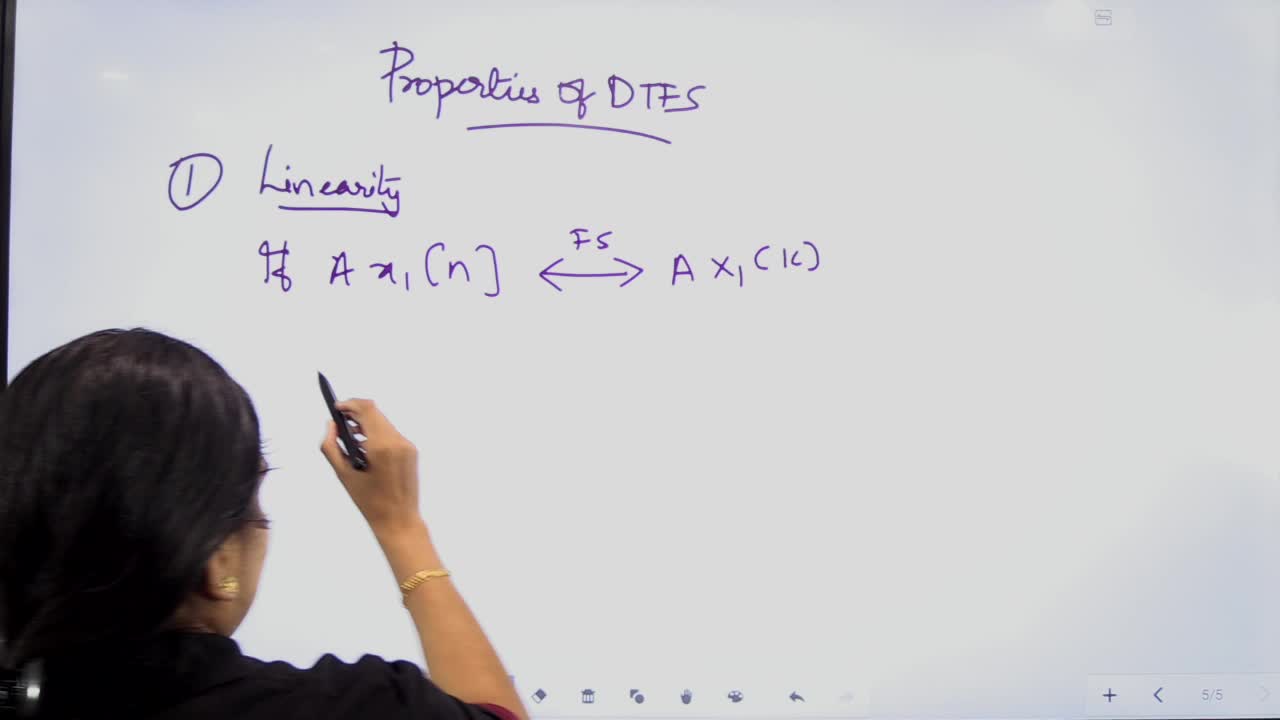 Properties of DTFS
① Linearity
If A x₁[n] ⟷ FS A X₁(k)
5/5